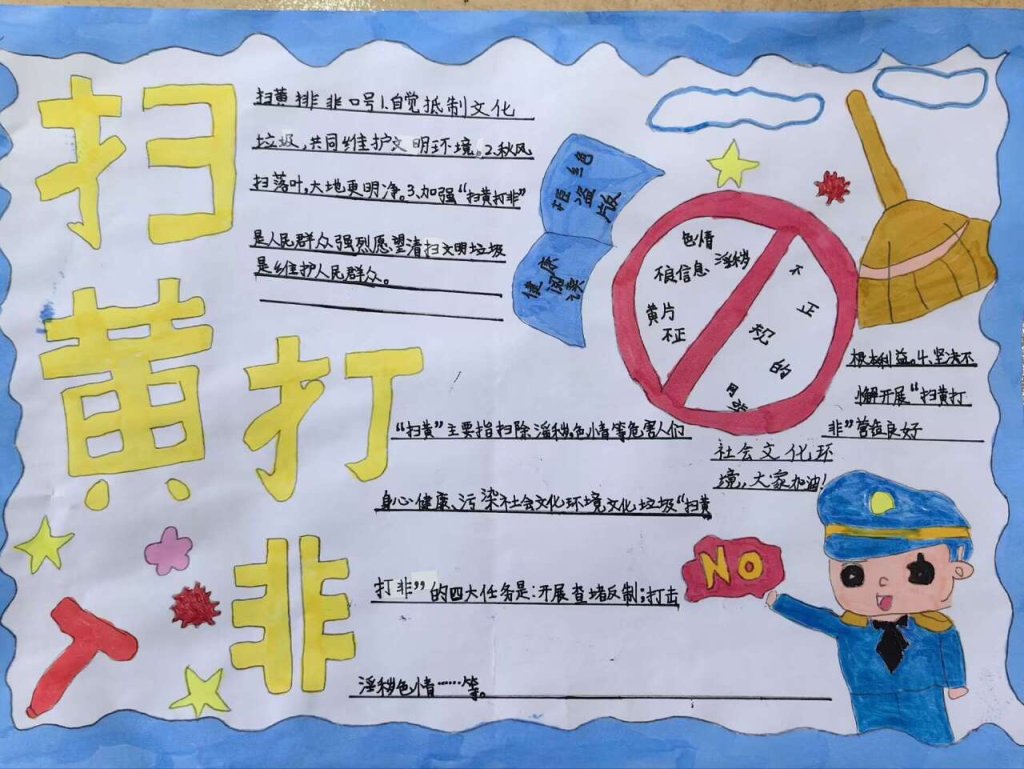 扫
黄
打
非
扫黄排非口号1.自觉抵制文化
垃圾,共同维护文明环境。2.秋风
扫落叶,大地更明净。3.加强“扫黄打非”
是人民群众强烈愿望清扫文明垃圾
是维护人民群众。
拒盗版
健康阅读
色情
不良信息 淫秽
黄片
不正
不正规的
根本利益。4.坚决不
懈开展“扫黄打
非”营造良好
社会文化环
境,大家加油!
“扫黄”主要指扫除淫秽色情等危害人们
身心健康、污染社会文化环境文化垃圾“扫黄
打非”的四大任务是:开展查堵反制;打击
淫秽色情……等。
NO